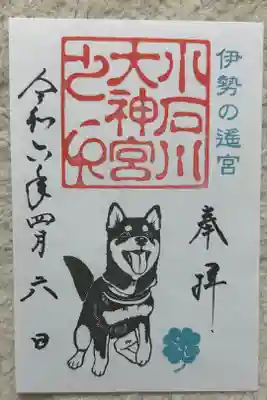 伊勢の遥宮
奉拝
小石川
大神宮
令和六年四月六日